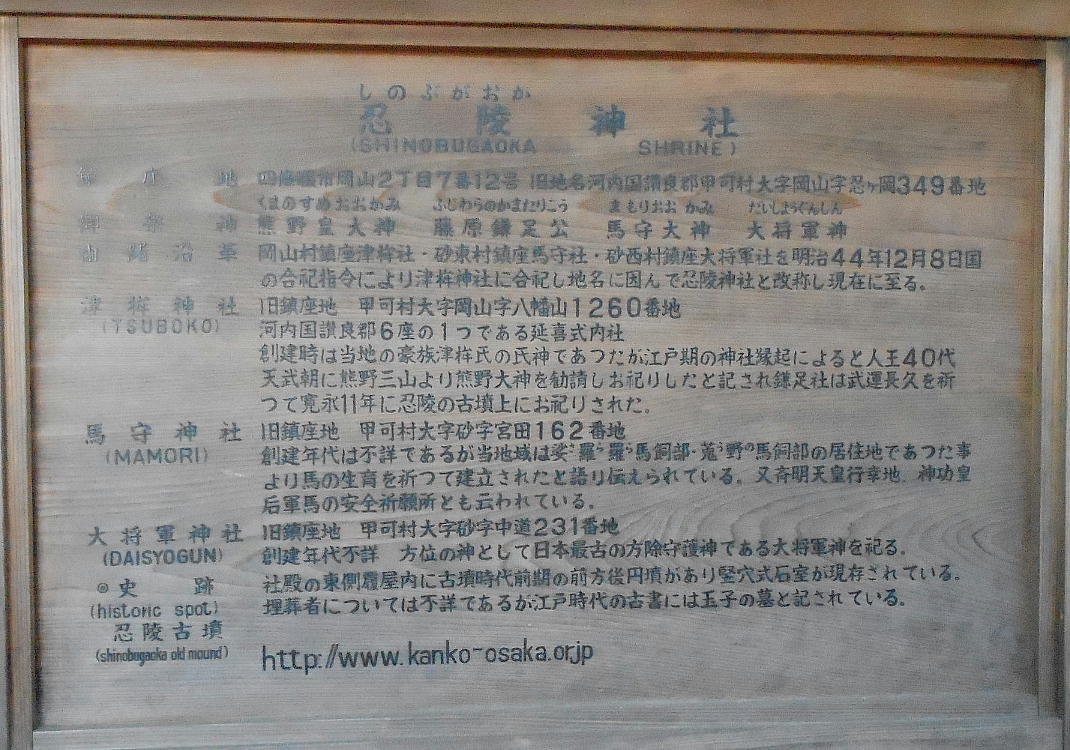 しのぶがおか
忍陵神社
(SHINOBUGAOKA SHRINE)
鎮座地 四條畷市岡山2丁目7番12号 旧地名河内国讃良郡甲可村大字岡山字忍ヶ岡349番地
くまのすめおおかみ ふじわらのかまたりこう まもりおおかみ だいしょうぐんしん
御祭神 熊野皇大神 藤原鎌足公 馬守大神 大将軍神
由緒沿革 岡山村鎮座津桙社・砂東村鎮座馬守社・砂西村鎮座大将軍社を明治44年12月8日国
の合祀指令により津桙神社に合祀し地名に因んで忍陵神社と改称し現在に至る。
津桙神社 旧鎮座地 甲可村大字岡山字八幡山1260番地
(TSUBOKO) 河内国讃良郡6座の1つである延喜式内社
創建時は当地の豪族津桙氏の氏神であつたが江戸期の神社縁起によると人王40代
天武朝に熊野三山より熊野大神を勧請しお祀りしたと記され鎌足社は武運長久を祈
つて寛永11年に忍陵の古墳上にお祀りされた。
馬守神社 旧鎮座地 甲可村大字砂字宮田162番地
(MAMORI) 創建年代は不詳であるが当地域は娑羅羅馬飼部・菟野馬飼部の居住地であつた事
より馬の生育を祈つて建立されたと語り伝えられている。又斉明天皇行幸地、神功皇
后軍馬の安全祈願所とも云われている。
大将軍神社 旧鎮座地 甲可村大字砂字中道231番地
(DAISYOGUN) 創建年代不詳 方位の神として日本最古の方除守護神である大将軍神を祀る。
◎史跡 社殿の東側履屋内に古墳時代前期の前方後円墳があり竪穴式石室が現存されている。
(historic spot) 埋葬者については不詳であるが江戸時代の古書には玉子の墓と記されている。
忍陵古墳
(shinobugaoka old mound) http://www.kanko-osaka.or.jp